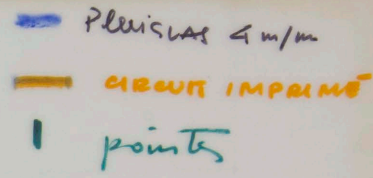 Plexiglas 4 m/m
CIRCUIT IMPRIMÉ
pointes